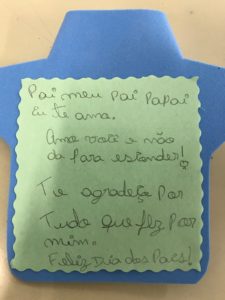 Pai meu pai Papai
Eu te ama.
Amo você e não
da para esconder!
Te agradeço por
Tudo que fez por
mim.
Feliz Dia dos Pais!